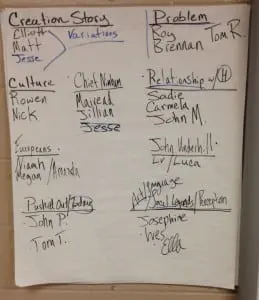 Creation Story
Elliott
Matt
Jesse
Variations
Problem
Roy
Brennan
Tom R.
Culture
Rowen
Nick
Chief Ninham
Mairead
Jillian
Jesse
Relationship w/ H
Sadie
Carmela
John M.
Europeans
Niamh
Megan / Amanda
John Underhill
Liv / Luca
Pushed Out / Today
John P.
Tom T.
Art / Language
Local Legends / Perception
Josephine
Wes
Ella